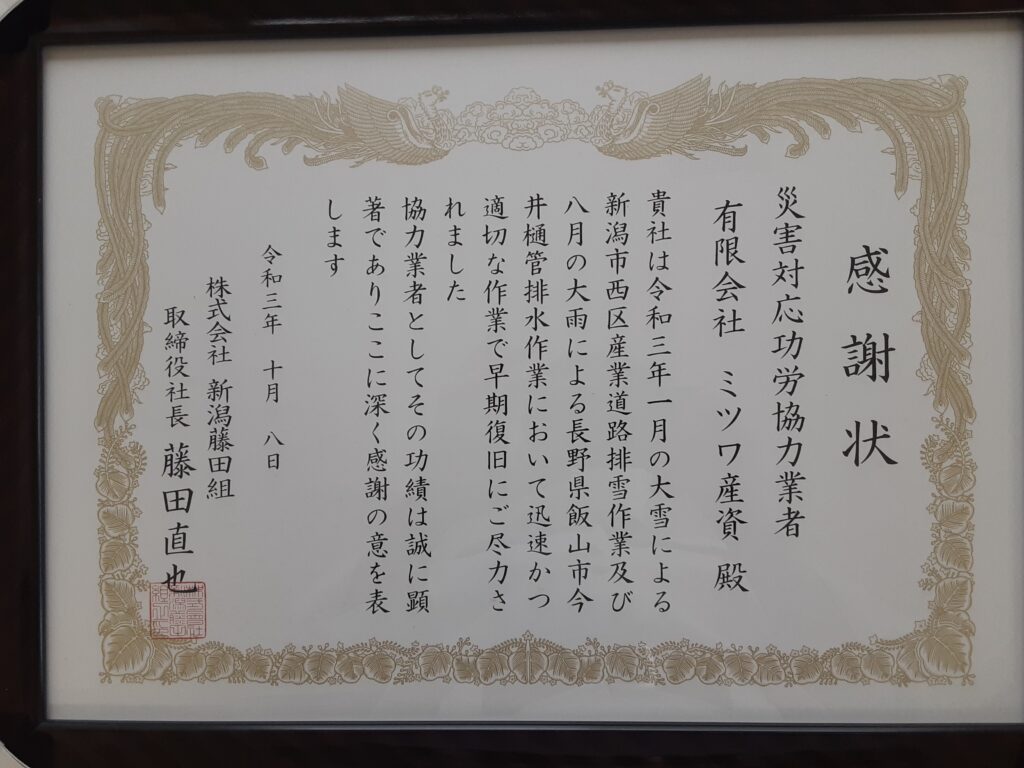 感謝状
災害対応功労協力業者
有限会社 ミツワ産資 殿
貴社は令和三年一月の大雪による
新潟市西区産業道路排雪作業及び
八月の大雨による長野県飯山市今
井樋管排水作業において迅速かつ
適切な作業で早期復旧にご尽力さ
れました
協力業者としてその功績は誠に顕
著でありここに深く感謝の意を表
します
令和三年 十月 八日
株式会社 新潟藤田組
取締役社長 藤田直也